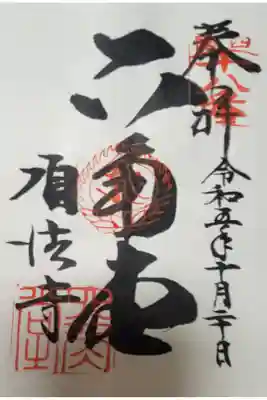 奉拝 令和五年十月二十日
六角堂
頂法寺